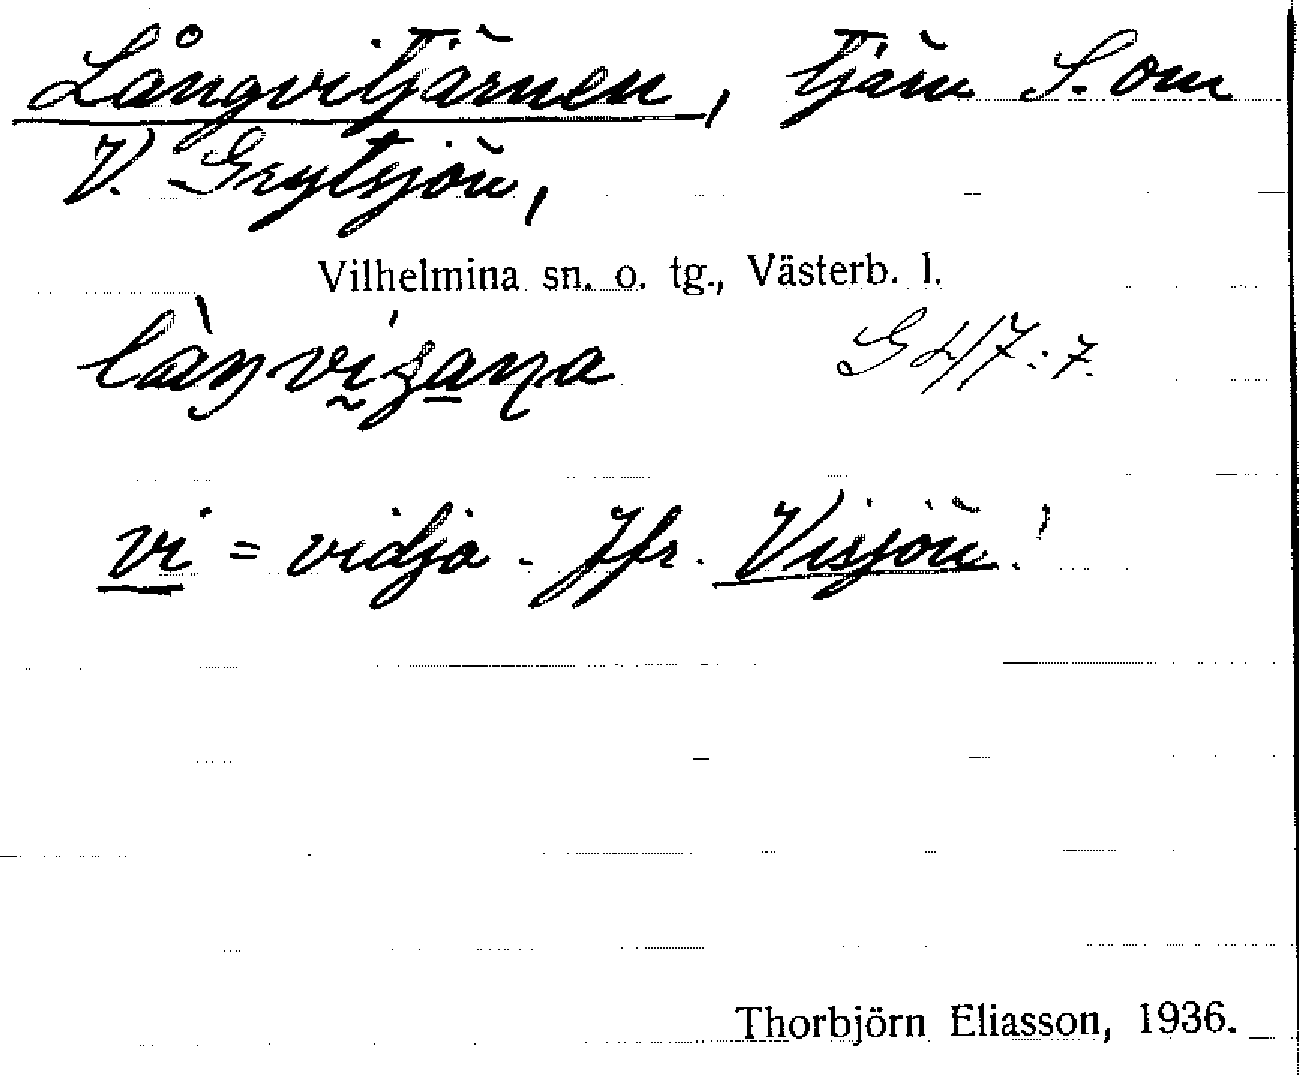 Långvitjärnen, tjärn S. om
V. Grytsjön,
Vilhelmina sn. o. tg., Västerb. l.
G47:7.
vi = vidja. Jfr. Visjön!
Thorbjörn Eliasson, 1936.